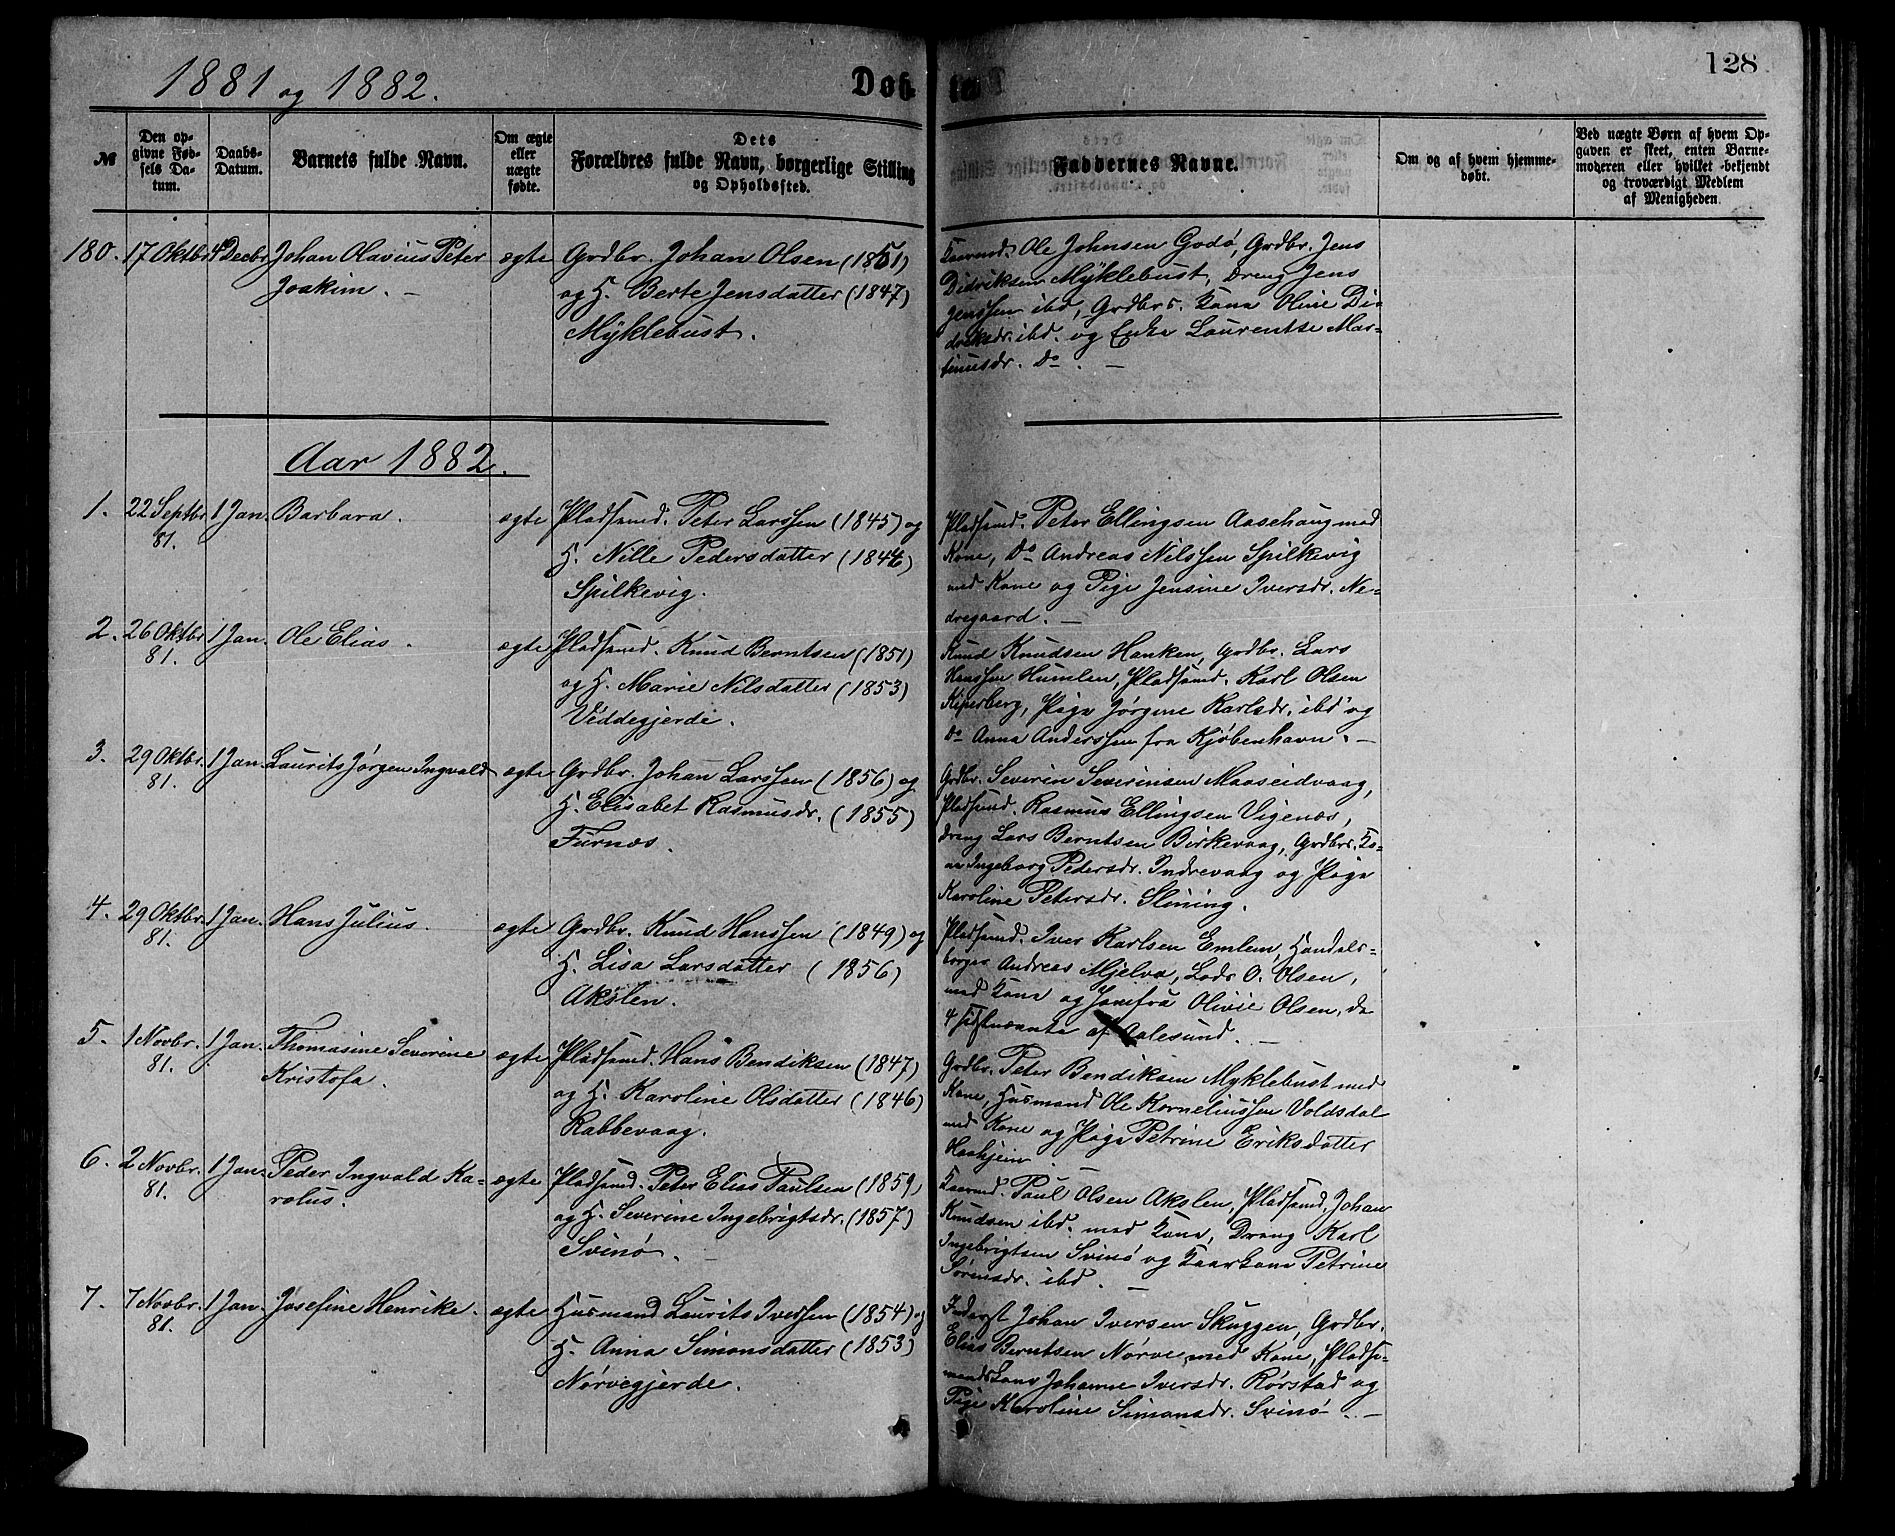 1881 og 1882.
Døb-
te.
128
№
Den op-
givne Fød-
sels Da-
tum.
Daabs-
Datum.
Barnets fulde Navn.
Om ægte
eller
uægte
fødte.
Dets
Forældres fulde Navn, borgerlige Stilling
og Opholdssted.
Faddernes Navne.
Om og af hvem hjemme-
døbt.
Ved uægte Børn af hvem Op-
gaven er skeet, enten Barne-
moderen eller hvilket bekjendt
og troværdigt Medlem
af Menigheden.
180. 17 Oktbr 4 Decbr Johan Olavius Peter
Joakim. —
ægte
Grdbr. Johan Olsen (1851)
og H. Berte Jensdatter (1847)
Myklebust.
Kaarmd. Ole Johnsen Godø, Grdbr. Jens
Didriksen Myklebust, Dreng Jens
Jenssen ibd, Grdbrs. Kone Oline Di-
driksdr. ibd. og Enke Laurentse Mar-
tinusdr. Do. —
Aar 1882.
1. 22 Septbr 1 Jan. Barbara.
81.
ægte
Pladsmd. Peter Larssen (1845) og
H. Nille Pedersdatter (1844)
Spilkevig.
Pladsmd. Peter Ellingsen Aasehaug med
Kone, Do Andreas Nilssen Spilkevig
med Kone og Pige Jensine Iversdr. Ne-
dregaard. —
2. 26 Oktbr 1 Jan. Ole Elias.
81.
ægte
Pladsmd. Knud Berntsen (1851)
og H. Marie Nilsdatter (1853)
Veddegjerde.
Knud Knudsen Hanken, Grdbr. Lars
Hanssen Humlen, Pladsmd. Karl Olsen
Kiperberg, Pige Jørgine Karlsdr. ibd og
Do Anna Anderssen fra Kjøbenhavn. —
3. 29 Oktbr. 1 Jan. Laurits Jørgen Ingvald
81.
ægte
Grdbr. Johan Larssen (1856) og
H. Elisabet Rasmusdr. (1855)
Furnæs.
Grdbr. Severin Severinsen Maaseidvaag,
Pladsmd. Rasmus Ellingsen Vigenæs,
Dreng Lars Berntsen Birkevaag, Grdbrs. Ko-
ne Ingeborg Pedersdr. Indrevaag og Pige
Karoline Petersdr. Slining.
4. 29 Oktbr. 1 Jan. Hans Julius.
81.
ægte
Grdbr. Knud Hanssen (1849) og
H. Lisa Larsdatter (1856)
Akslen.
Pladsmd. Iver Karlsen Emlem, Handels-
borger Andreas Mjelva, Lods O. Olsen,
med Kone og Jomfru Olivie Olsen, de
4 sidstnævnte af Aalesund. —
5. 1 Novbr. 1 Jan. Thomasine Severine
81.
Kristofa.
ægte
Pladsmd. Hans Bendiksen (1847)
og H. Karoline Olsdatter (1846)
Rabbevaag.
Grdbr. Peter Bendiksen Myklebust med
Kone, Husmand Ole Korneliussen Voldsdal
med Kone og Pige Petrine Eriksdatter
Haahjem.
6. 2 Novbr. 1 Jan. Peder Ingvald Ka-
81.
rolus.
ægte
Pladsmd. Peter Elias Paulsen (1859,
og H. Severine Ingebrigtsdr. (1857)
Svinø. —
Kaarmd. Paul Olsen Akslen, Pladsmd, Johan
Knudsen ibd. med Kone, Dreng Karl
Ingebrigtsen Svinø og Kaarkone Petrine
Sørensdr. ibd. —
7. 7 Novbr. 1 Jan. Josefine Henrike.
81.
ægte
Husmand Laurits Iversen (1854) og
H. Anna Simonsdatter (1853)
Nørvegjerde.
Inderst Johan Iversen Skuggen, Grdbr.
Elias Berntsen Nørve med Kone, Pladsm-
mands Kone Johanne Iversdr. Rørstad og
Pige Karoline Simonsdr. Svinø. —